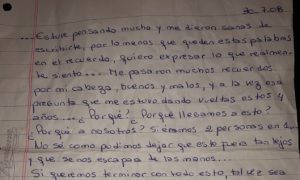 30.7.08
....Estuve pensando mucho y me dieron ganas de
escribirte, por lo menos que queden estas palabras
en el recuerdo, quiero expresar lo que realmen-
te siento.... Me pasaron muchos recuerdos
por mi cabeza, buenos y malos, y a la vez esa
pregunta que me estuvo dando vueltas estos 4
años.... ¿Porqué? ¿Porqué llegamos a esto?
¿Porqué a nosotros? Si eramos 2 personas en 1
No sé como pudimos dejar que esto fuera tan lejos
y que se nos escapara de las manos...
Si queremos terminar con todo esto, tal vez sea